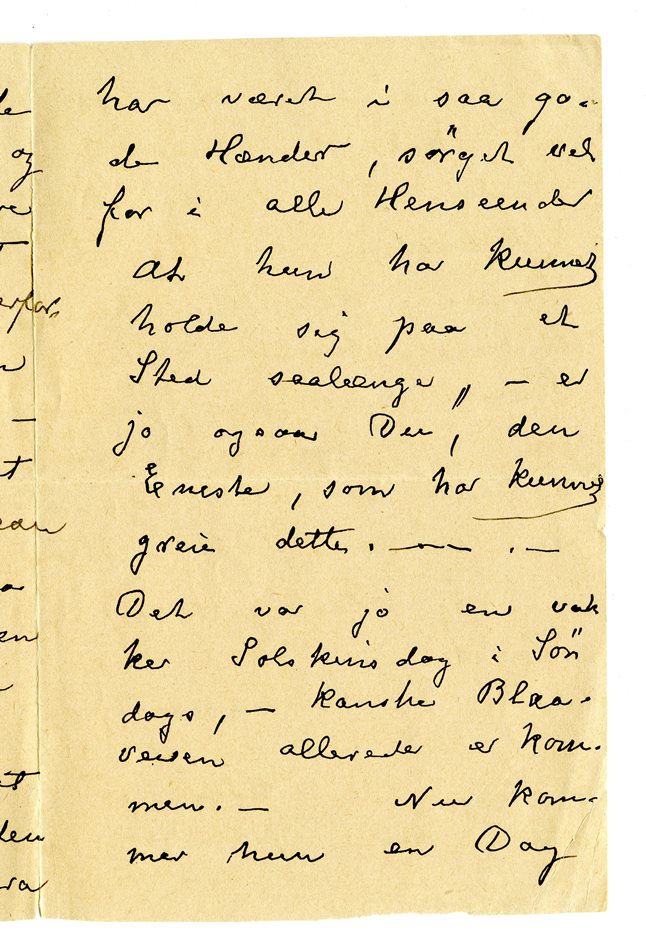 de
og
har været i saa go-
de Hænder, sörget vel
for i alle Henseender
At hun har kunnet
holde sig paa et
Sted saalænge, — er
jo ogsaa Du, den
Eneste, som har kunnet
greie dette. — — . —
Det var jo en vak
ker Solskinsdag i Sön
dags, — kanske Blaa-
veisen allerede er kom-
men. — Nu kom-
mer hun en Dag